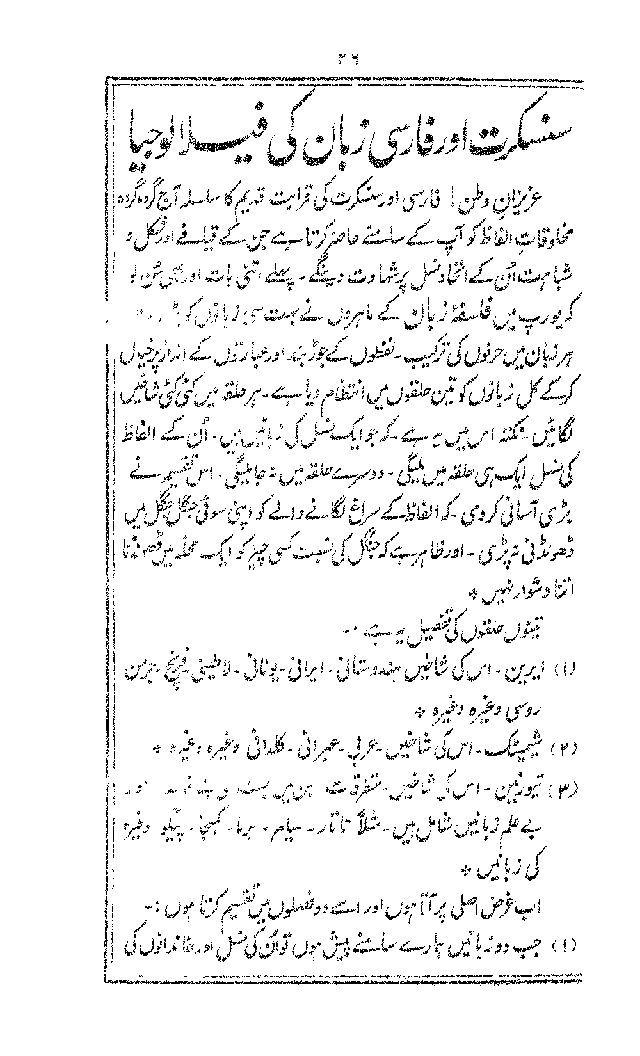 ۲۶
سنسکرت اور فارسی زبان کی فیلالوجیا
عزیزانِ وطن! فارسی اور سنسکرت کی قرابت قدیم کا سلسلہ آج گروہ گروہ
مخلوقاتِ الفاظ کو آپ کے سامنے حاضر کرتا ہے جن کے قیافے اور شکل و
شباہت اُن کے اتحادِ نسل پر شہادت دینگے۔ پہلے اتنی بات اور بھی سُن لو
کہ یورپ میں فلسفۂ زبان کے ماہروں نے بہت سی زبانوں کو
ہر زبان میں حرفوں کی ترکیب۔ لفظوں کے جوڑ بند اور عبارتوں کے انداز پر خیال
کر کے کل زبانوں کو تین حلقوں میں انتظام دیا ہے۔ ہر حلقہ میں کئی کئی شاخیں
لگائیں۔ نکتہ اس میں یہ ہے کہ جو ایک نسل کی زبانیں ہیں۔ اُن کے الفاظ
کی نسل ایک ہی حلقہ میں ملیگی۔ دوسرے حلقہ میں نہ جا ملیگی۔ اس تقسیم نے
بڑی آسانی کر دی۔ کہ الفاظ کے سراغ لگانے والے کو اپنی سوئی جنگل جنگل میں
ڈھونڈنی نہ پڑی۔ اور ظاہر ہے کہ جنگل کی نسبت کسی چیز کو ایک محلہ میں ڈھونڈنا
اتنا دشوار نہیں *
تینوں حلقوں کی تفصیل یہ ہے۔۔
(۱) ایرین۔ اس کی شاخیں ہندوستانی۔ ایرانی۔ یونانی۔ لاطینی۔ فرنچ۔ جرمن
روسی وغیرہ وغیرہ *
(۲) شیمیٹک۔ اس کی شاخیں۔ عربی۔ عبرانی۔ کلدانی وغیرہ وغیرہ *
(۳) تیورینین۔ اس کی شاخیں۔ متفرقات ہیں جن میں پست و اور
بے علم زبانیں شامل ہیں۔ مثلاً تاتار۔ سیام۔ برما۔ کمبجا۔ پیگو وغیرہ
کی زبانیں *
اب غرض اصلی پر آتا ہوں اور اسے دو فصلوں میں تقسیم کرتا ہوں :۔
(۱) جب دو زبانیں ہمارے سامنے پیش ہوں تو اُن کی نسل اور خاندانوں کی